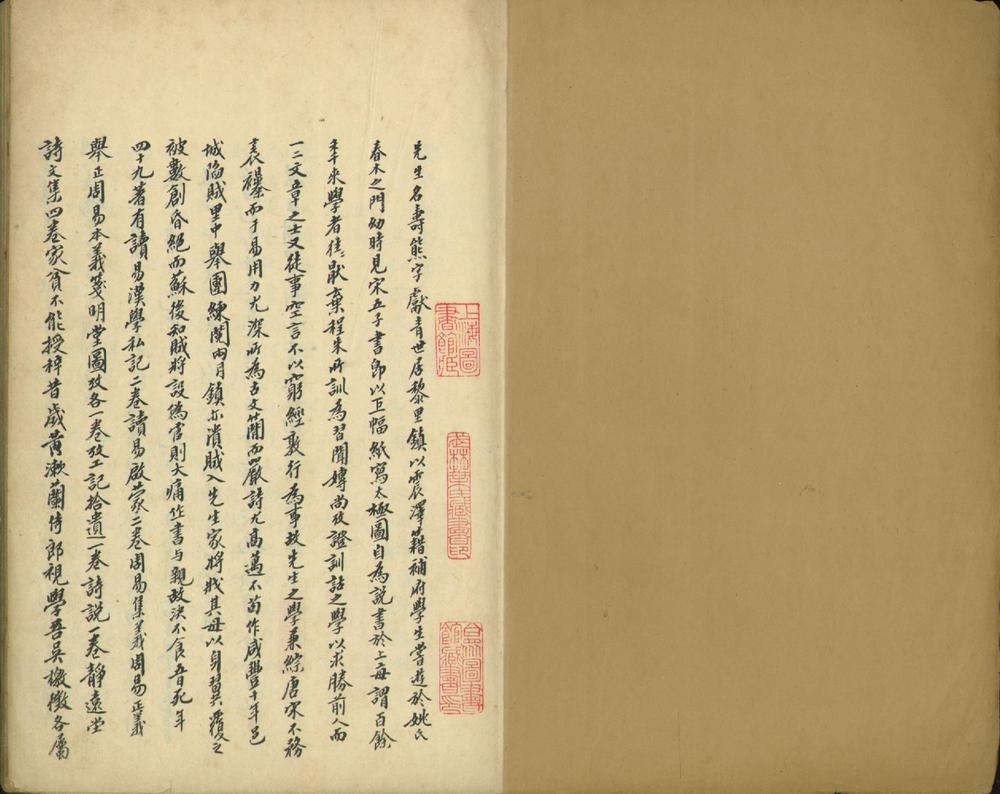 先生名壽熊字獻青世居黎里鎮以震澤籍補府學生嘗遊於姚氏
春木之門幼時見宋五子書即以巨幅紙寫太極圖自為說書於上每謂百餘
年來學者往〻厭棄程朱所訓為習聞專尚攷證訓詁之學以求勝前人而
一二文章之士又徒事空言不以窮經敦行為事故先生之學兼綜唐宋不務
表襮而于易用力尤深所為古文簡而嚴詩尤高邁不苟作咸豐十年邑
城陷賊里中舉團練閱兩月鎮亦潰賊入先生家將戕其母以身翼覆之
被數創昏絕而蘇後知賊將設偽官則大痛作書与親故決不食吞死年
四十九著有讀易漢學私記二卷讀易啟蒙二卷周易集義周易正義
舉正周易本義箋明堂圖攷各一卷攷工記拾遺一卷詩說一卷靜遠堂
詩文集四卷家貧不能授梓昔歲黃漱蘭侍郎視學吾吳檄徵各屬
上海圖書館藏
葉氏藏書印
合眾圖書館藏書印